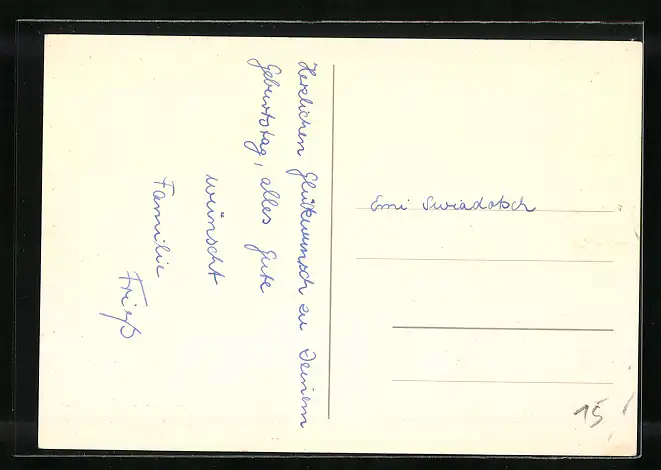 Herzlichen Glückwunsch zu Deinem
Geburtstag, alles Gute
wünscht
Familie
Frieß
Emi Swiadotsch
15